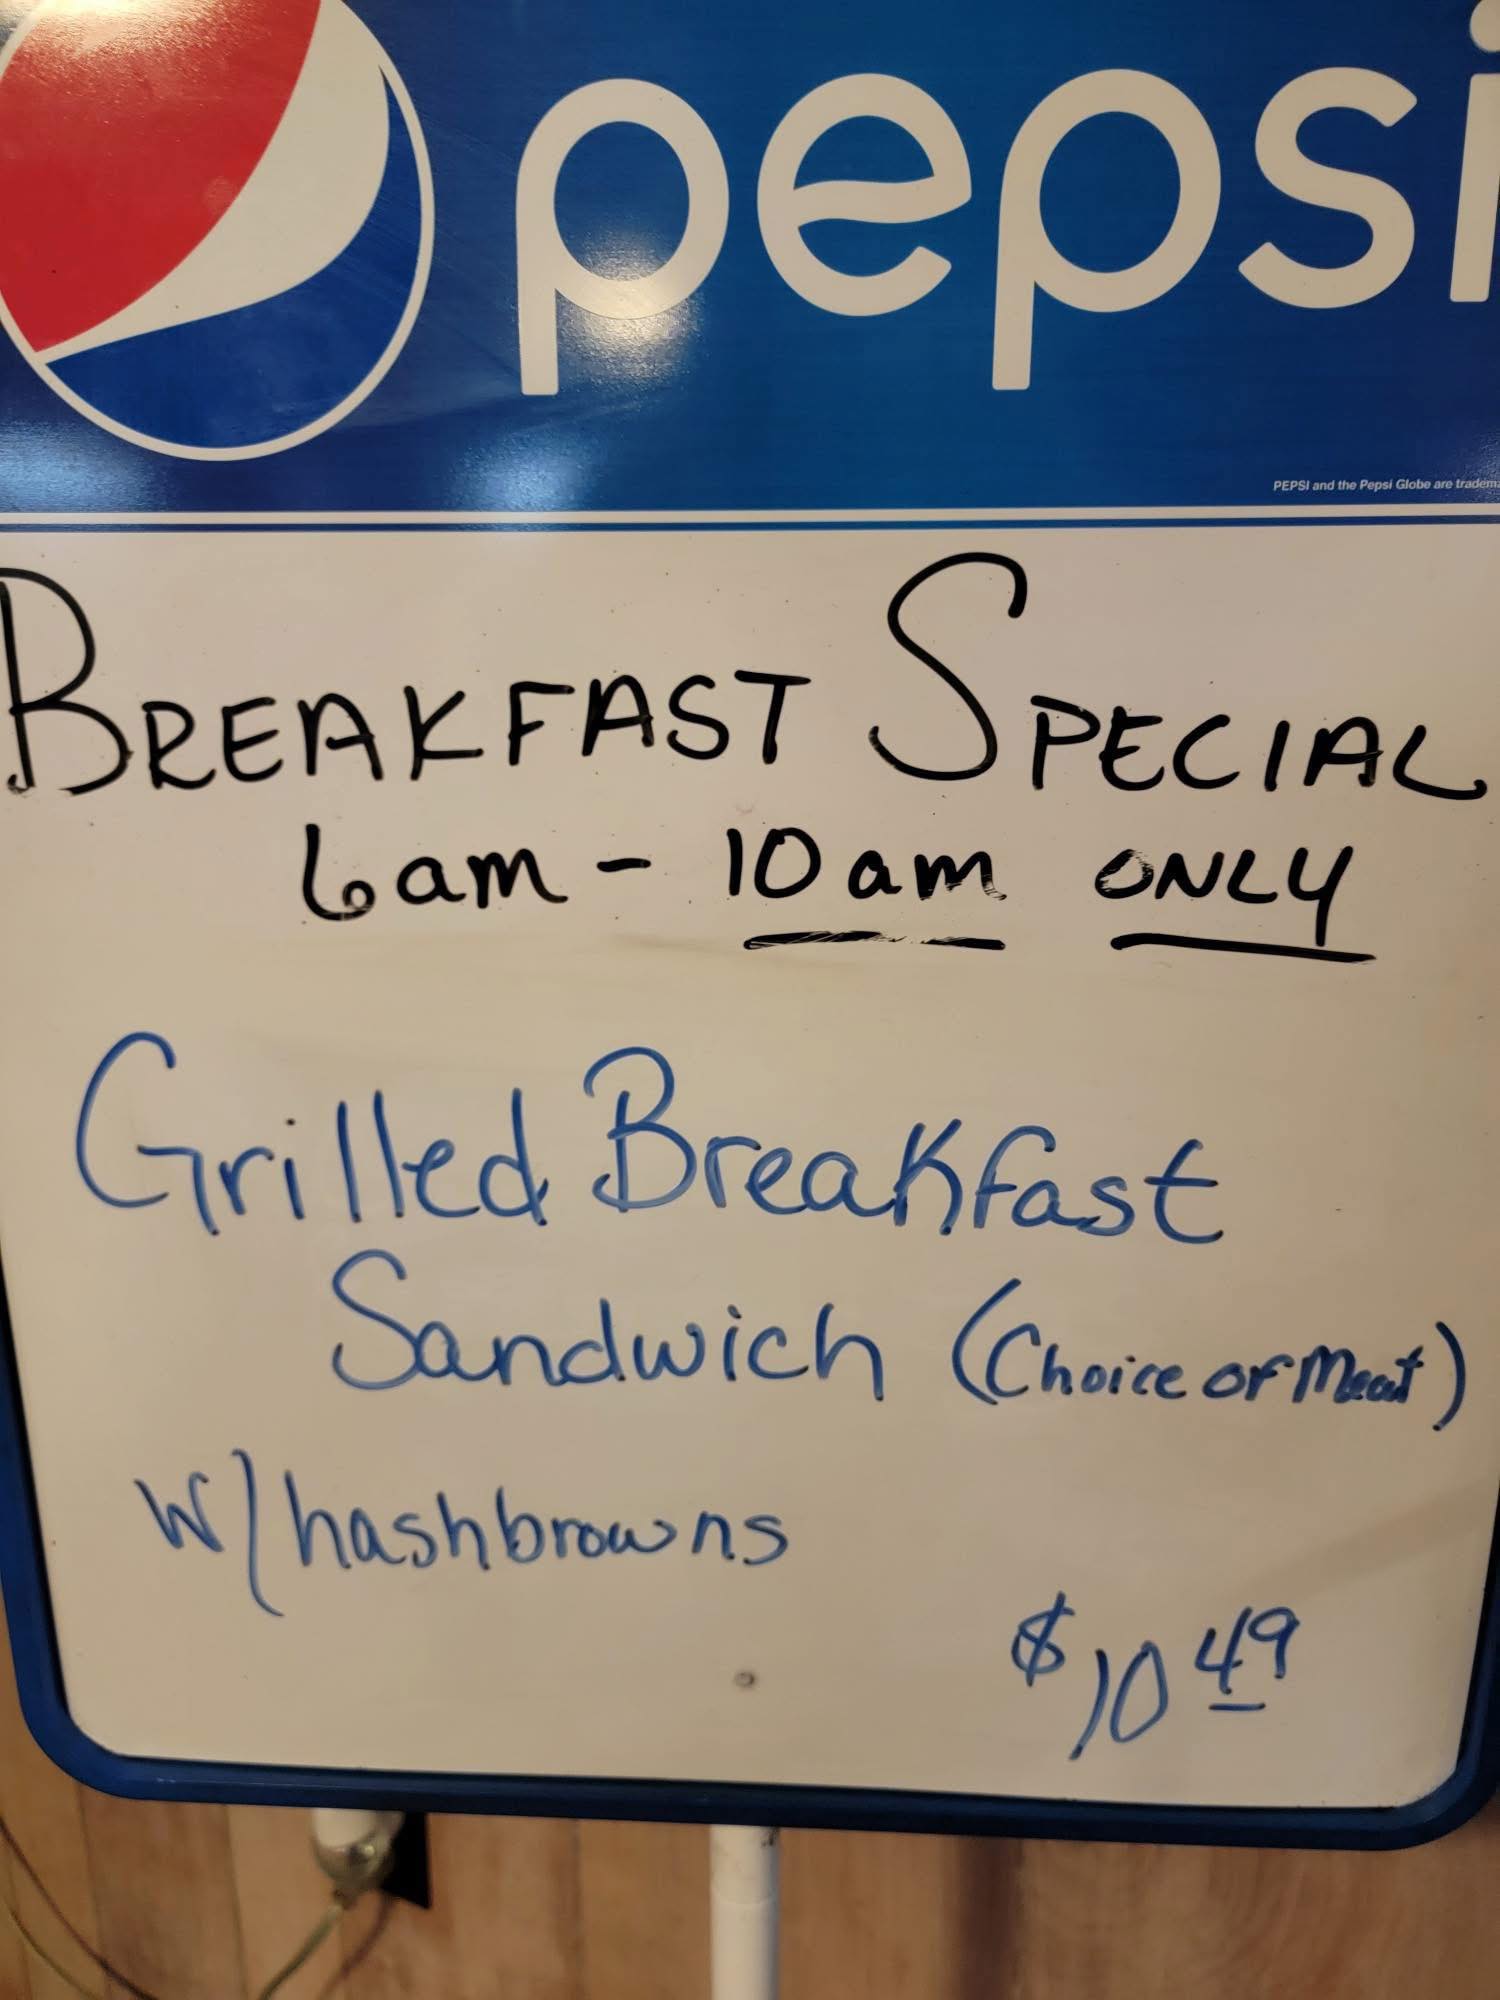 pepsi
PEPSI and the Pepsi Globe are
BREAKFAST SPECIAL
6am - 10am ONLY
Grilled Breakfast
Sandwich (Choice of Meat)
w/hashbrowns
$10 49